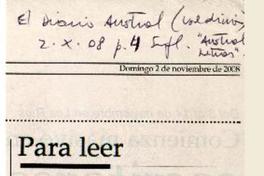 El Diario Austral (Valdivia)
2. X. 08 p. 4 Supl. "Austral
Letras".
Domingo 2 de noviembre de 2008
Para leer